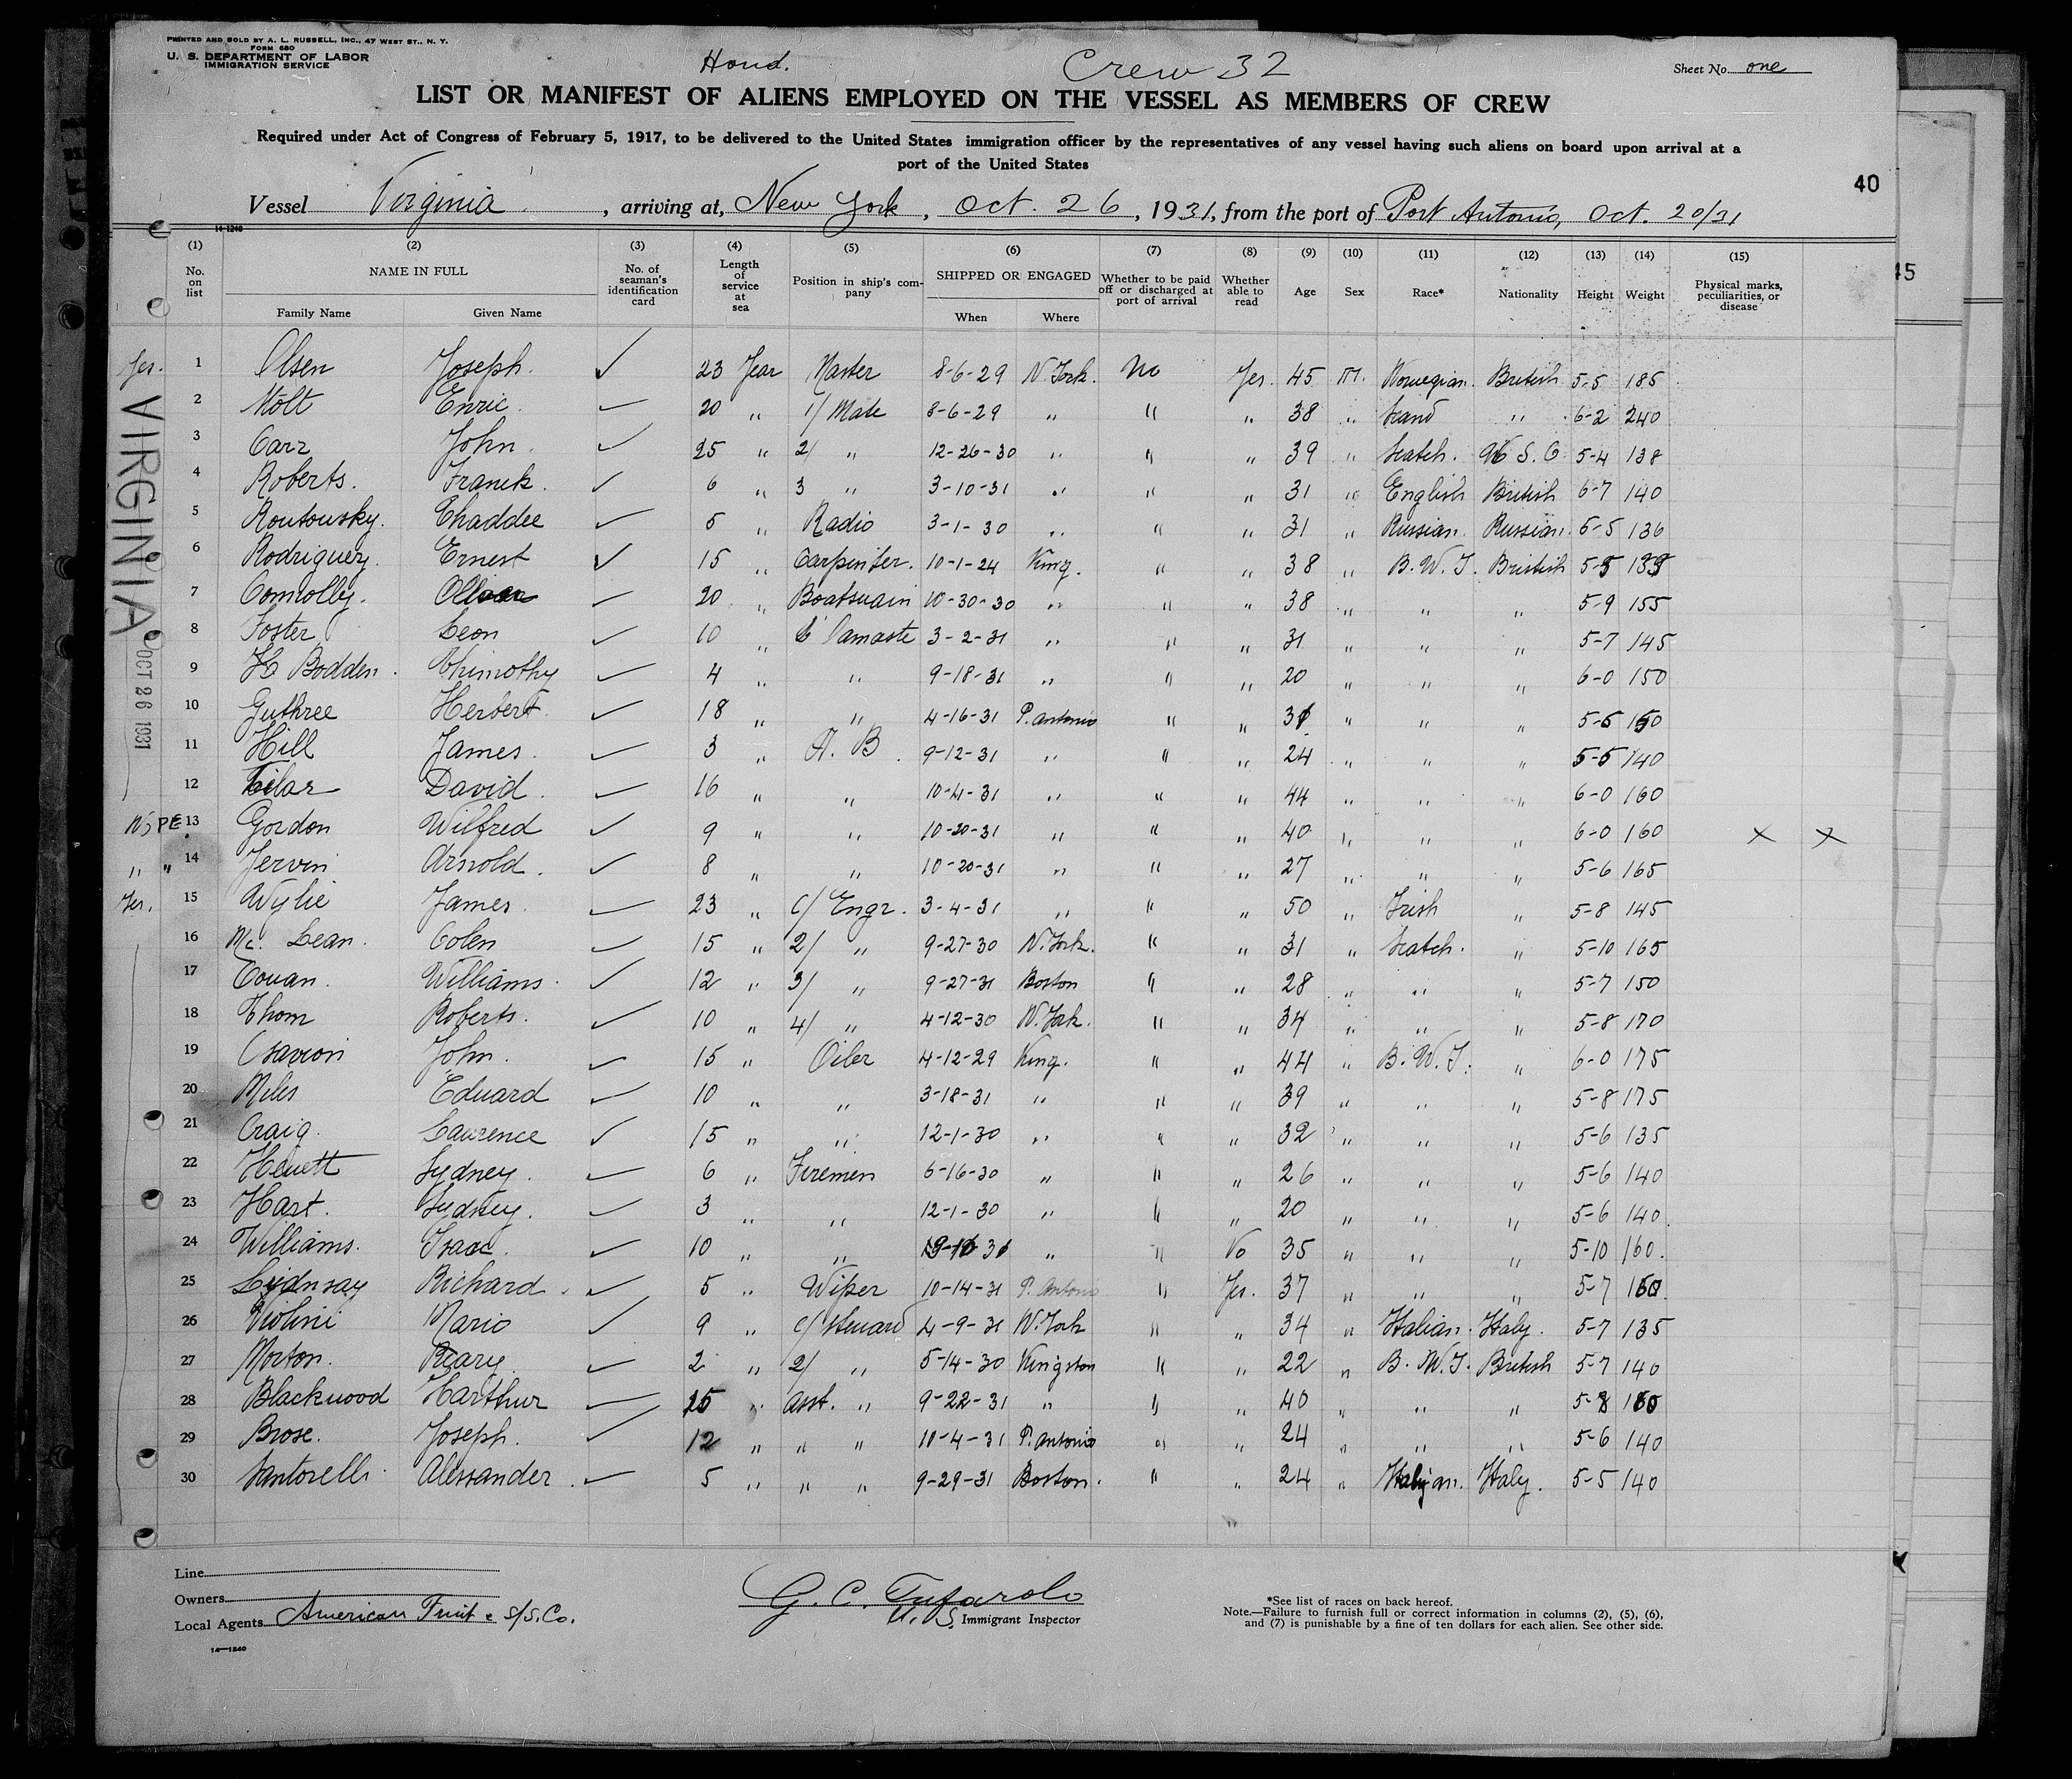 PRINTED AND SOLD BY A. L. RUSSELL, INC., 47 WEST ST., N. Y.
FORM 680
U. S. DEPARTMENT OF LABOR
IMMIGRATION SERVICE
Hond. Crew 32
Sheet No. one
LIST OR MANIFEST OF ALIENS EMPLOYED ON THE VESSEL AS MEMBERS OF CREW
Required under Act of Congress of February 5, 1917, to be delivered to the United States immigration officer by the representatives of any vessel having such aliens on board upon arrival at a
port of the United States
40
Vessel Virginia, arriving at, New York, Oct. 26, 1931, from the port of Port Antonio, Oct. 20/31
14-1240
(1) (2) (3) (4) (5) (6) (7) (8) (9) (10) (11) (12) (13) (14) (15)
No. on list NAME IN FULL Family Name Given Name No. of seaman's identification card Length of service at sea Position in ship's company SHIPPED OR ENGAGED When Where Whether to be paid off or discharged at port of arrival Whether able to read Age Sex Race* Nationality Height Weight Physical marks, peculiarities, or disease
45
VIRGINIA
OCT 26 1931
Yes. 1 Olsen Joseph. ✓ 23 Year Master 8-6-29 N. York. No Yes. 45 M. Norwegian. British 5-5 185
2 Molt Enric. ✓ 20 " 1/ Mate 8-6-29 " " " 38 " Scand " 6-2 240
3 Carr John ✓ 25 " 2/ " 12-26-30 " " " 39 " Scatch. U. S. C 5-4 138
4 Roberts. Franck. ✓ 6 " 3 " 3-10-31 " " " 31 " English British 6-7 140
5 Routousky. Chaddee ✓ 5 " Radio 3-1-30 " " " 31 " Russian. Russian. 5-5 136
6 Rodriguez. Ernest ✓ 15 " Carpinter. 10-1-24 King. " " 38 " B. W. I. British 5-5
7 Connolly. ✓ 20 " Boatsuain 10-30-30 " " " 38 " " " 5-9 155
8 Foster Leon ✓ 10 " 3-2-31 " " " 31 " " " 5-7 145
9 H Bodden. Thimothy ✓ 4 " " 9-18-31 " " " 20 " " " 6-0 150
10 Guthree Herbert. ✓ 18 " " 4-16-31 P. antonio " " " " " 5-5
11 Hill James. ✓ 3 " A. B. 9-12-31 " " " 24 " " " 5-5 140
12 David. ✓ 16 " " 10-4-31 " " " 44 " " " 6-0 160
PE 13 Gordon Wilfred ✓ 9 " " 10-20-31 " " " 40 " " " 6-0 160 X X
" " 14 Jervin Arnold. ✓ 8 " " 10-20-31 " " " 27 " " " 5-6 165
Yes. 15 Wylie James. ✓ 23 " C/ Engr. 3-4-31 " " " 50 " Irish " 5-8 145
16 Mc. Lean. Colen ✓ 15 " 2/ " 9-27-30 N. York. " " 31 " Scatch. " 5-10 165
17 Couan. Williams. ✓ 12 " 3/ " 9-27-31 Boston " " 28 " " " 5-7 150
18 Thom Roberts. ✓ 10 " 4/ " 4-12-30 N. York. " " 34 " " " 5-8 170
19 John. ✓ 15 " Oiler 4-12-29 King. " " 44 " B. W. I. " 6-0 175
20 Miles Eduard ✓ 10 " " 3-18-31 " " " 39 " " " 5-8 175
21 Craig. Laurence ✓ 15 " " 12-1-30 " " " 32 " " " 5-6 135
22 Heuett Sydney. ✓ 6 " Firemen 6-16-30 " " " 26 " " " 5-6 140
23 Hart. Sydney. ✓ 3 " " 12-1-30 " " " 20 " " " 5-6 140.
24 Williams. Isaac. ✓ 10 " " " " No 35 " " " 5-10 160.
25 Lidnsay Richard. ✓ 5 " Wiper 10-14-31 P. Antonio " Yes. 37 " " " 5-7 150.
26 Violini Mario ✓ 9 " C/ Stuard 4-9-31 N. York " " 34 " Italian. Italy. 5-7 135
27 Morton. ✓ 2 " 2/ " 5-14-30 Kingston " " 22 " B. W. I. British 5-7 140
28 Blackwood Harthur ✓ 25 " asst. " 9-22-31 " " " 40 " " " 5-8
29 Brose. Joseph. ✓ 12 " " " 10-4-31 P. antonio " " 24 " " " 5-6 140
30 Santorelli. Alessander. ✓ 5 " " " 9-29-31 Boston. " " 24 " Italian. Italy. 5-5 140
"
Line
Owners
Local Agents American Fruit & S/S. Co.
14-1240
G. C. Tufarolo
U. S. Immigrant Inspector
*See list of races on back hereof.
Note.—Failure to furnish full or correct information in columns (2), (5), (6),
and (7) is punishable by a fine of ten dollars for each alien. See other side.